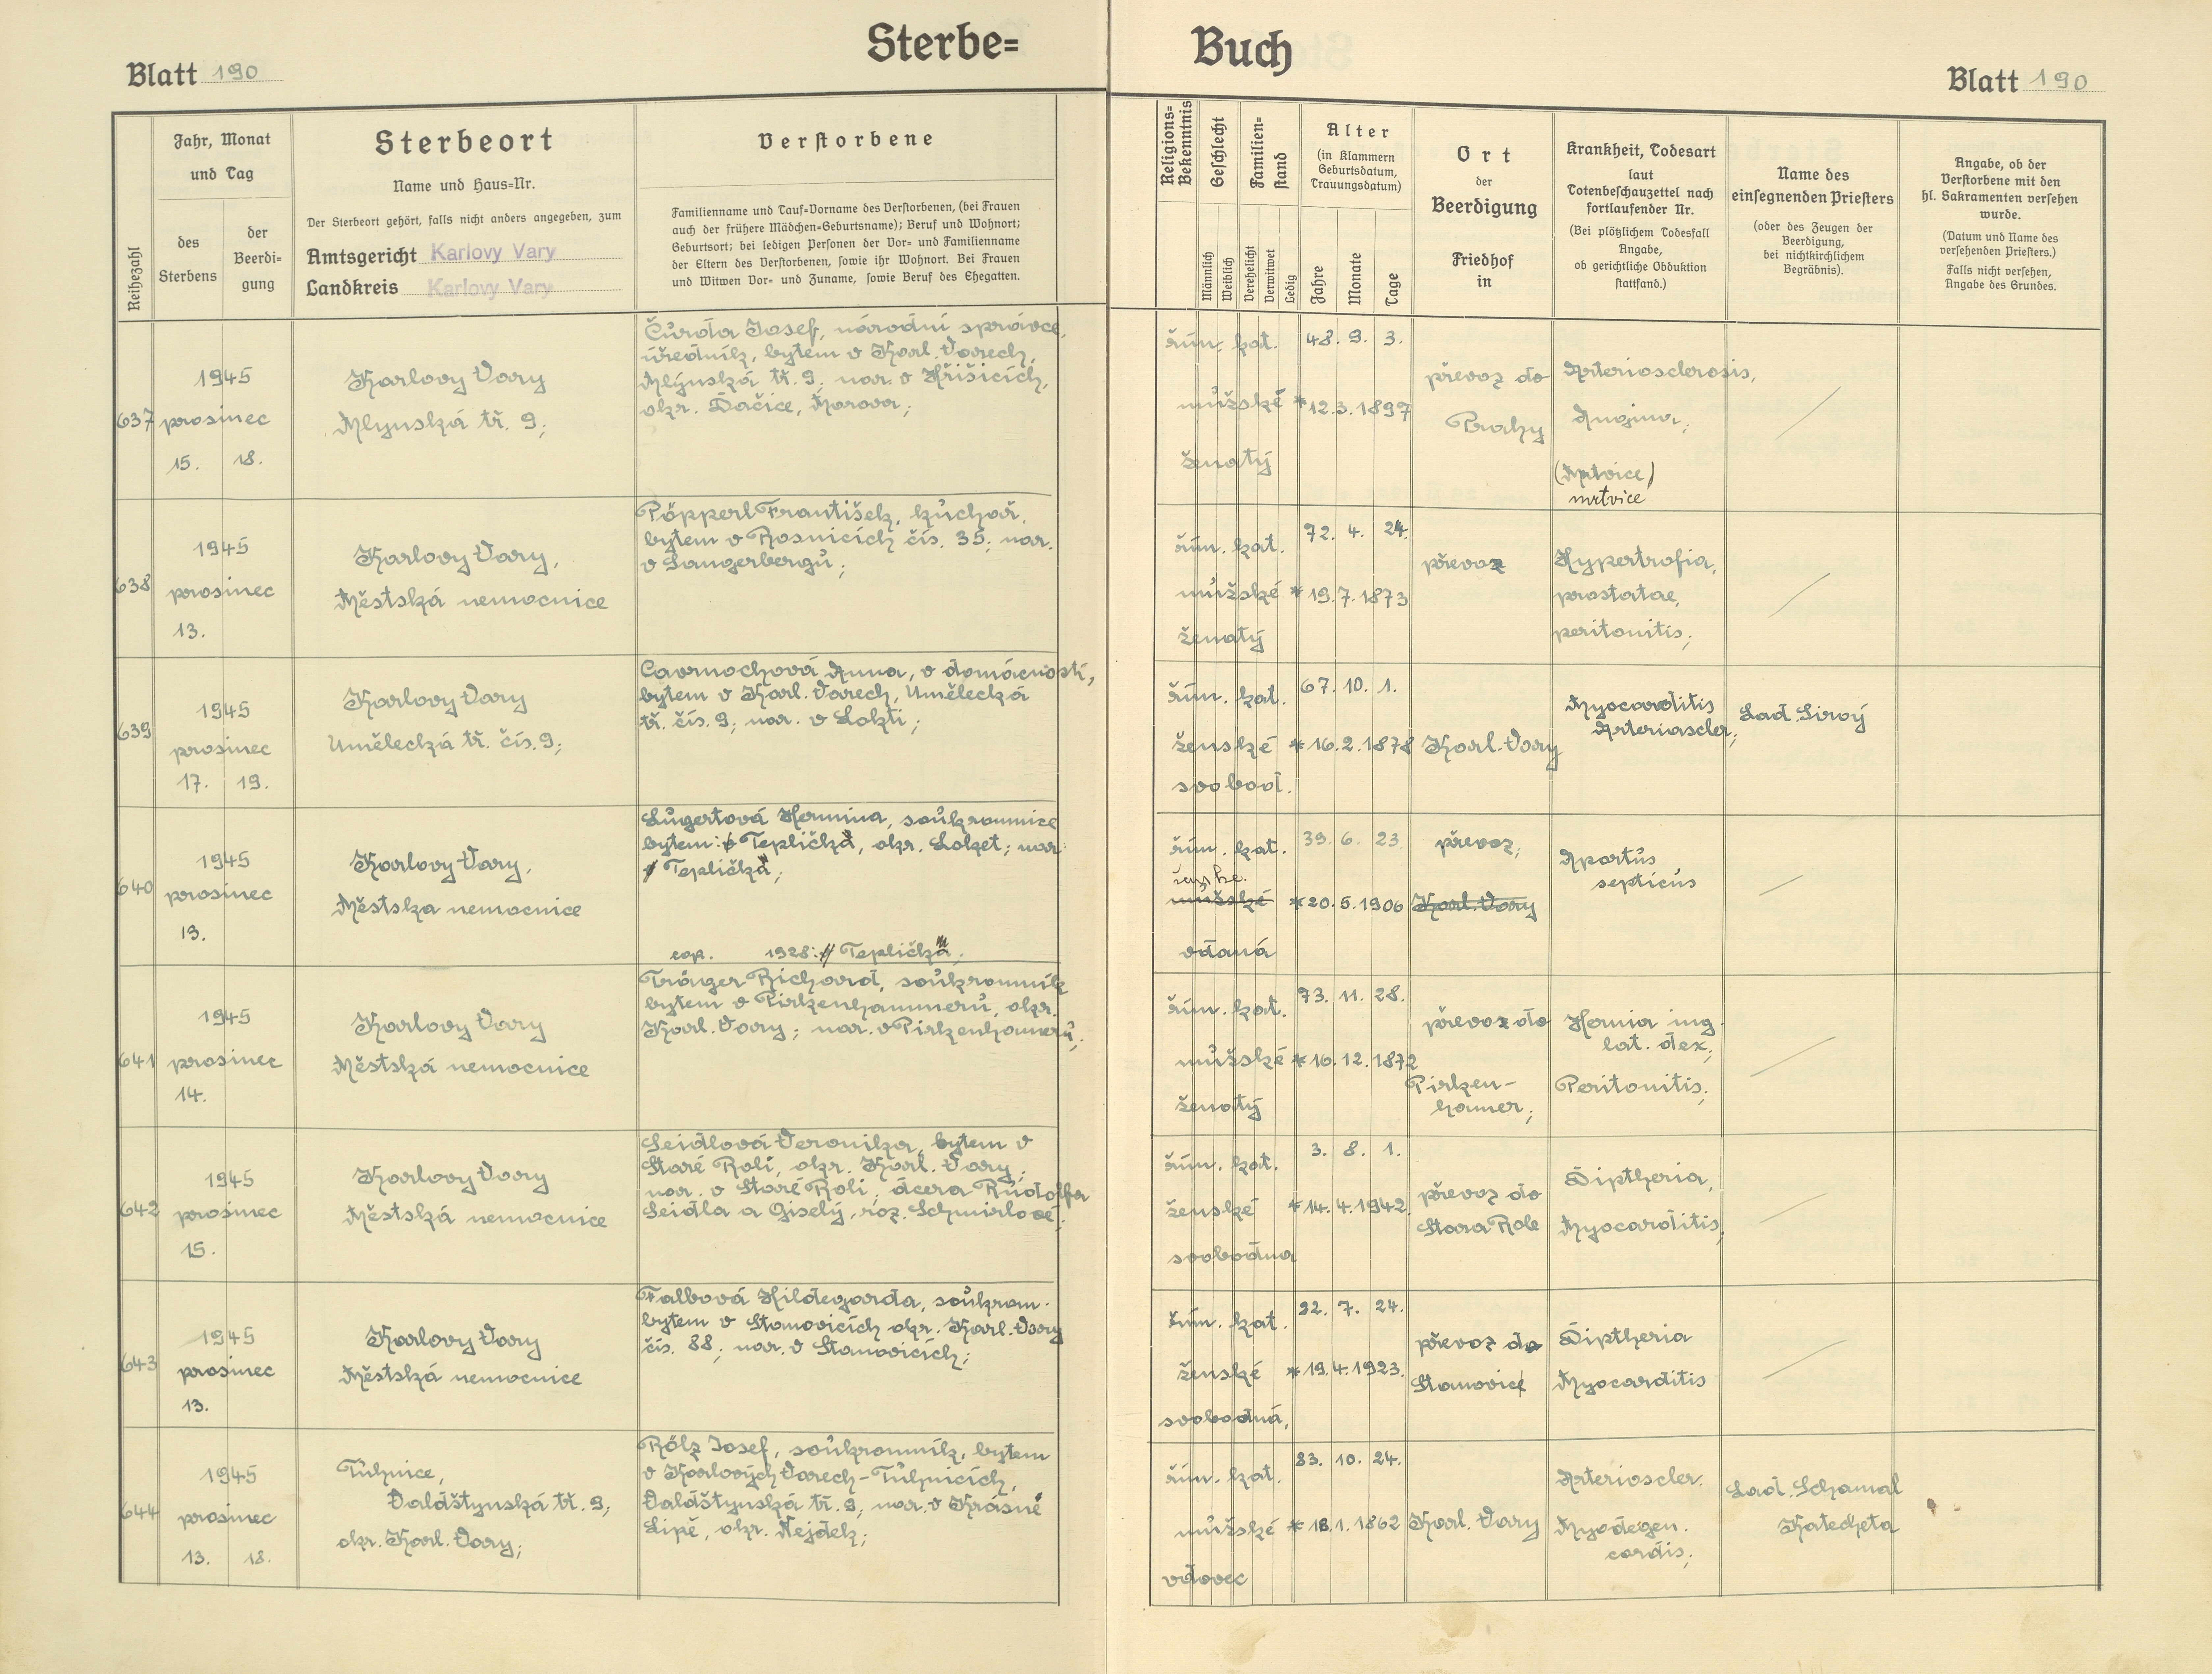 Sterbe=
Buch
Blatt 190
Blatt 190
Reihezahl
Jahr, Monat
und Tag
des
Sterbens
der
Beerdi-
gung
Sterbeort
Name und Haus=Nr.
Der Sterbeort gehört, falls nicht anders angegeben, zum
Amtsgericht Karlovy Vary
Landkreis Karlovy Vary
Verstorbene
Familienname und Tauf=Vorname des Verstorbenen, (bei Frauen
auch der frühere Mädchen=Geburtsname); Beruf und Wohnort;
Geburtsort; bei ledigen Personen der Vor= und Familienname
der Eltern des Verstorbenen, sowie ihr Wohnort. Bei Frauen
und Witwen Vor= und Zuname, sowie Beruf des Ehegatten.
Religions=
Bekenntnis
Geschlecht
Männlich
Weiblich
Familien=
stand
Verehelicht
Verwitwet
Ledig
Alter
(in Klammern
Geburtsdatum,
Trauungsdatum)
Jahre
Monate
Tage
Ort
der
Beerdigung
Friedhof
in
Krankheit, Todesart
laut
Totenbeschauzettel nach
fortlaufender Nr.
(Bei plötzlichem Todesfall
Angabe,
ob gerichtliche Obduktion
stattfand.)
Name des
einsegnenden Priesters
(oder des Zeugen der
Beerdigung,
bei nichtkirchlichem
Begräbnis).
Angabe, ob der
Verstorbene mit den
hl. Sakramenten versehen
wurde.
(Datum und Name des
versehenden Priesters.)
Falls nicht versehen,
Angabe des Grundes.
637
1945
prosinec
15. 18.
Karlovy Vary
Mlynská tř. 9;
Čurda Josef, národní správce,
úředník, bytem v Karl. Varech,
Mlýnská tř. 9; nar. v Křišicích,
okr. Dačice, Morava;
řím. kat.
mužské
ženatý
48. 9. 3.
*12.3.1897
převoz do
Prahy
Arteriosclerosis,
Angina;
(Mrtvice)
mrtvice
638
1945
prosinec
13.
Karlovy Vary,
Městská nemocnice
Pöpperl František, kuchař,
bytem v Rosnicích čís. 35; nar.
v Sangerbergu;
řím. kat.
mužské
ženatý
72. 4. 24.
*19.7.1873
převoz
Hypertrofia,
prostatae,
peritonitis;
639
1945
prosinec
17. 19.
Karlovy Vary
Umělecká tř. čís. 9;
Cavrnochová Anna, v domácnosti,
bytem v Karl. Varech, Umělecká
tř. čís. 9; nar. v Lokti;
řím. kat.
ženské
svobod.
67. 10. 1.
*16.2.1878
Karl. Vary
Myocarditis
Arterioscler;
Lad. Sirový
640
1945
prosinec
13.
Karlovy Vary,
Městska nemocnice
Lugertová Hermina, soukromnice
bytem: Teplička, okr. Loket; nar.
Teplička;
cop. 1928: Teplička;
řím. kat.
ženske.
mužské
vdaná
39. 6. 23.
*20.5.1906
převoz;
Karl. Vary
Apartus
septicus
641
1945
prosinec
14.
Karlovy Vary
Městská nemocnice
Träger Richard, soukromník
bytem v Pirkenhammeru, okr.
Karl. Vary; nar. v Pirkenhameru;
řím. kat.
mužské
ženatý
73. 11. 28.
*16.12.1872
převoz do
Pirken-
hamer;
Hernia ing.
lat. dex;
Peritonitis;
642
1945
prosinec
15.
Karlovy Vary
Městská nemocnice
Seidlová Veronika, bytem v
Staré Roli, okr. Karl. Vary;
nar. v Staré Roli; dcera Rudolfa
Seidla a Giselý, roz. Schmirlové;
řím. kat.
ženské
svobodna
3. 8. 1.
*14.4.1942.
převoz do
Stara Role
Diptheria,
Myocarditis;
643
1945
prosinec
13.
Karlovy Vary
Městská nemocnice
Falbová Hildegarda, soukrom.
bytem v Stanovicích okr. Karl. Vary
čís. 88; nar. v Stanovicích;
řím. kat.
ženské
svobodná,
22. 7. 24.
*19.4.1923.
převoz do
Stanovice
Diptheria
Myocarditis
644
1945
prosinec
13. 18.
Tuhnice,
Valdštynská tř. 9;
okr. Karl. Vary;
Rölz Josef, soukromník, bytem
v Karlových Varech-Tuhnicích,
Valdštynská tř. 9; nar. v Krasné
Lipě, okr. Nejdek;
řím. kat.
mužské
vdovec
83. 10. 24.
*18.1.1862
Karl. Vary
Arterioscler.
Myodegen.
cordis;
Lad. Schamal
Katecheta